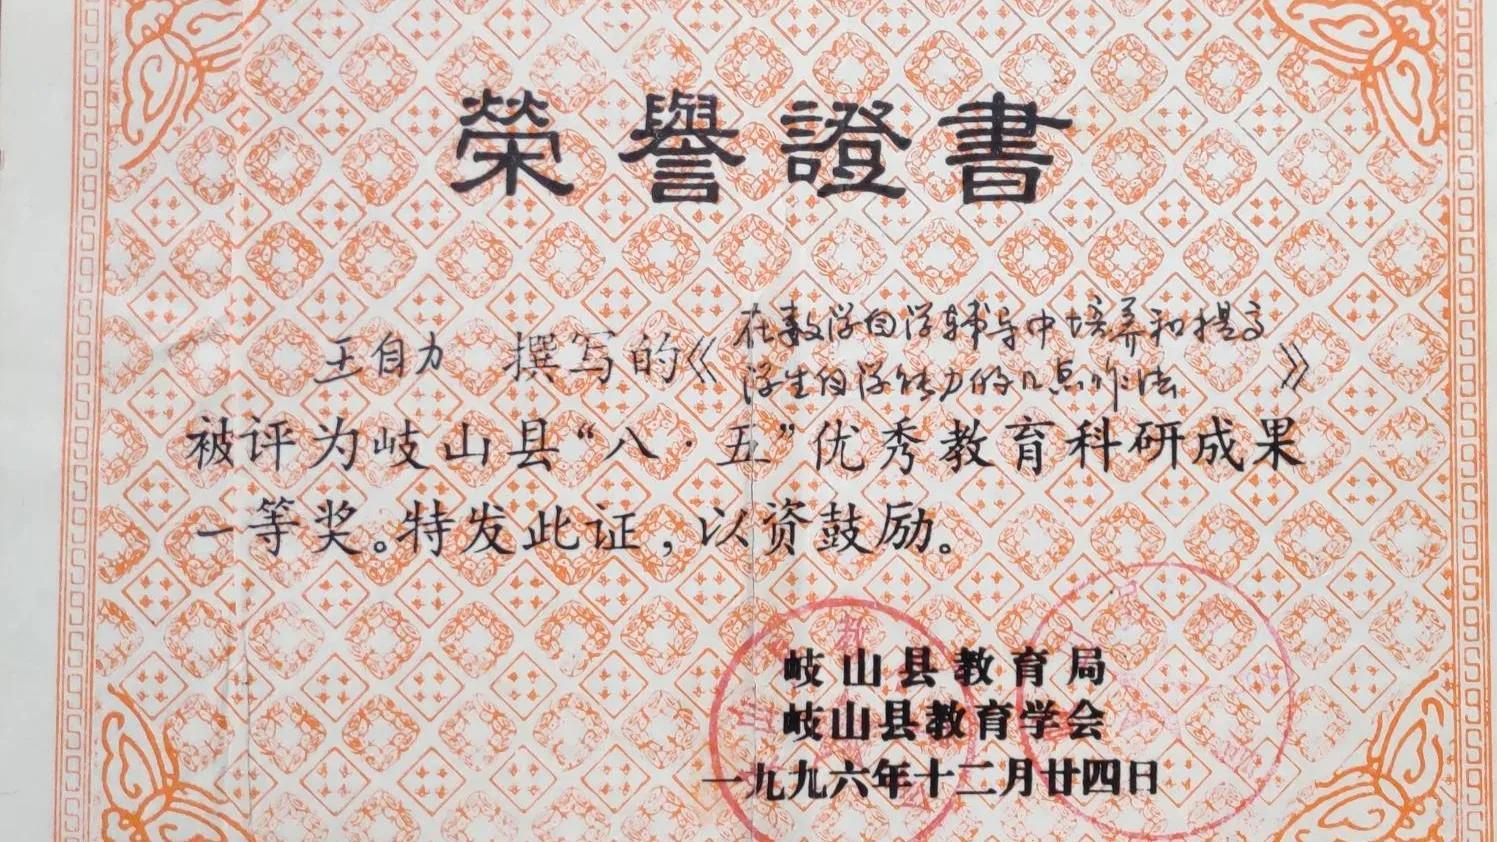 榮譽證書
王自力 撰写的《在数学自学辅导中培养和提高
学生自学能力的几点作法》
被评为岐山县“八·五”优秀教育科研成果
一等奖。特发此证，以资鼓励。
岐山县教育局
岐山县教育学会
一九九六年十二月廿四日